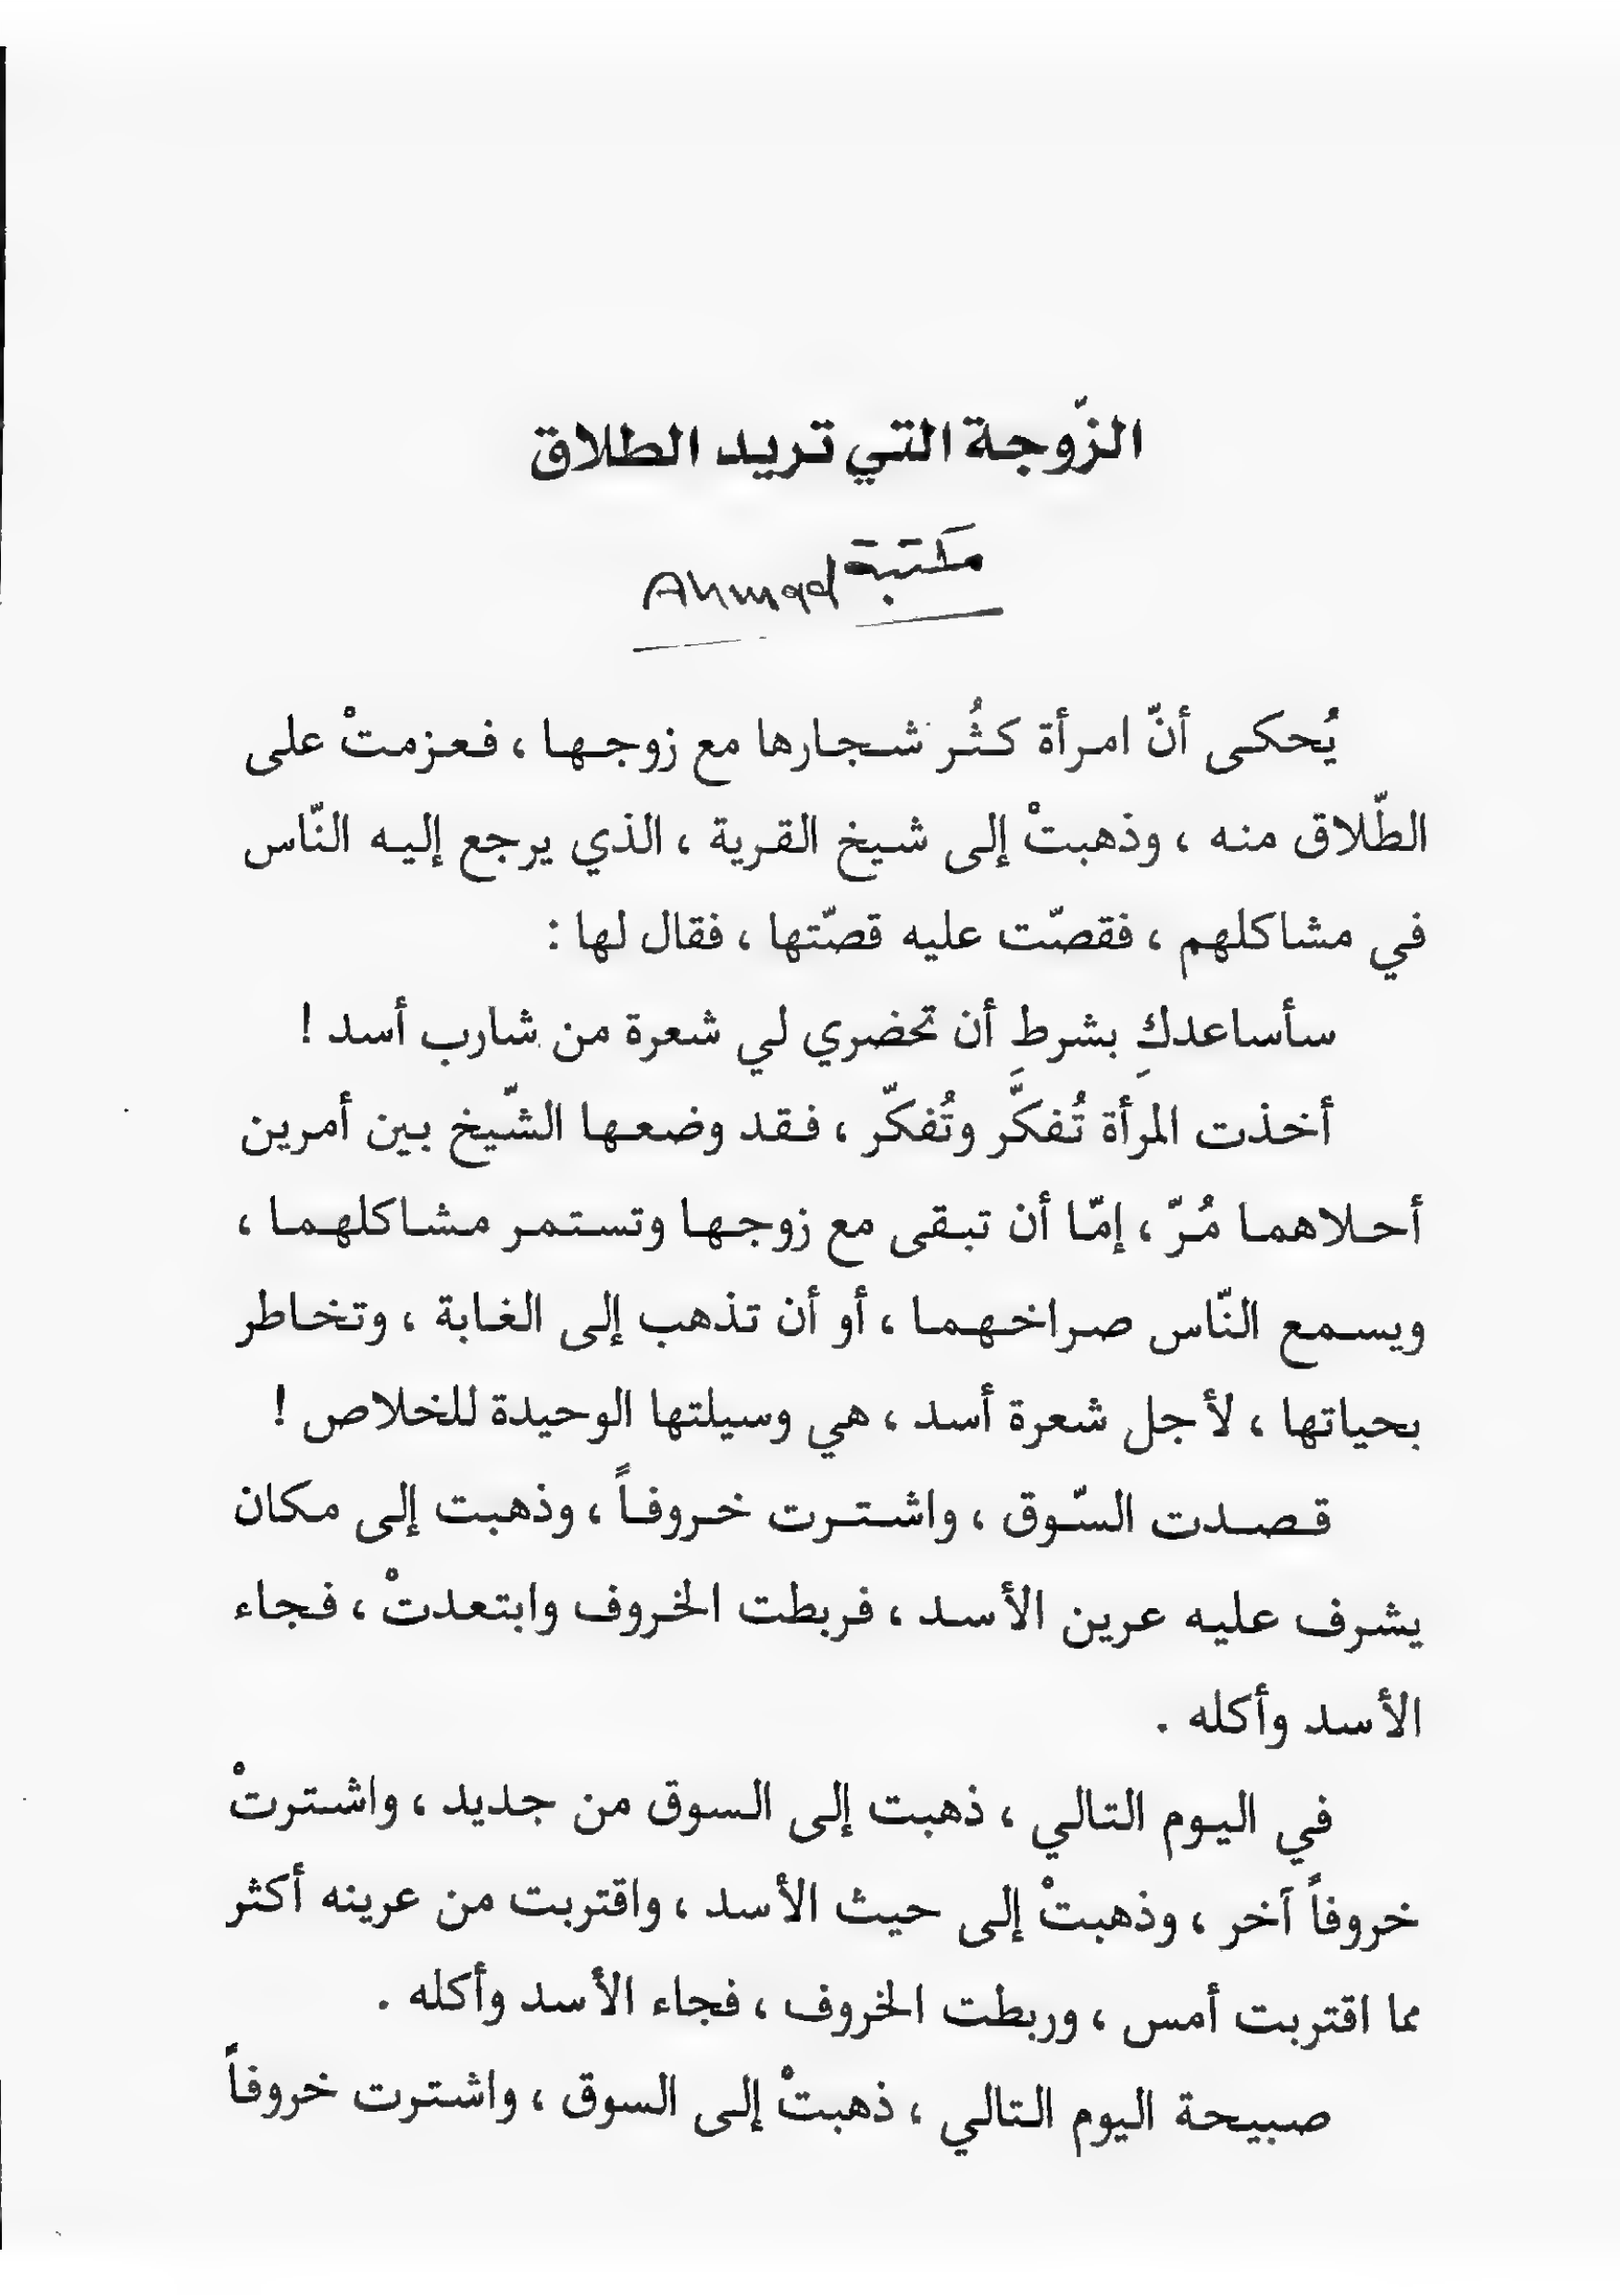 الزّوجة التي تريد الطلاق
مكتبة Ahmad
يُحكى أنّ امرأة كثُر شجارها مع زوجها ، فعزمتْ على
الطّلاق منه ، وذهبتْ إلى شيخ القرية ، الذي يرجع إليه النّاس
في مشاكلهم ، فقصّت عليه قصّتها ، فقال لها :
سأساعدكِ بشرطِ أن تحضري لي شعرة من شارب أسد !
أخذت المرأة تُفكَّر وتُفكّر ، فقد وضعها الشّيخ بين أمرين
أحلاهما مُرّ ، إمّا أن تبقى مع زوجها وتستمر مشاكلهما ،
ويسمع النّاس صراخهما ، أو أن تذهب إلى الغابة ، وتخاطر
بحياتها ، لأجل شعرة أسد ، هي وسيلتها الوحيدة للخلاص !
قصدت السّوق ، واشترت خروفاً ، وذهبت إلى مكان
يشرف عليه عرين الأسد ، فربطت الخروف وابتعدتْ ، فجاء
الأسد وأكله .
في اليوم التالي ، ذهبت إلى السوق من جديد ، واشترتْ
خروفاً آخر ، وذهبتْ إلى حيث الأسد ، واقتربت من عرينه أكثر
مما اقتربت أمس ، وربطت الخروف ، فجاء الأسد وأكله .
صبيحة اليوم التالي ، ذهبتْ إلى السوق ، واشترت خروفاً